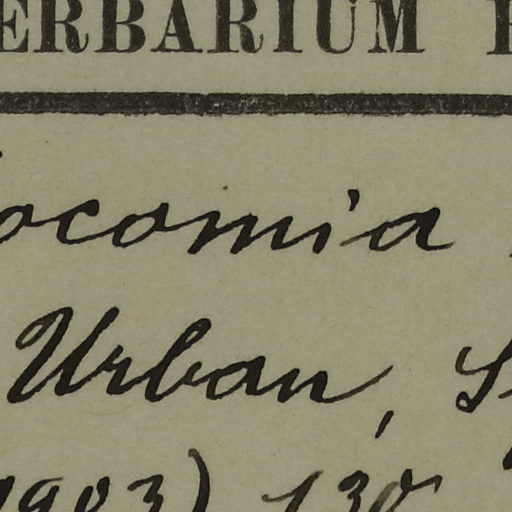 ERBARIUM
ocomia
Urban, S
1903) 130